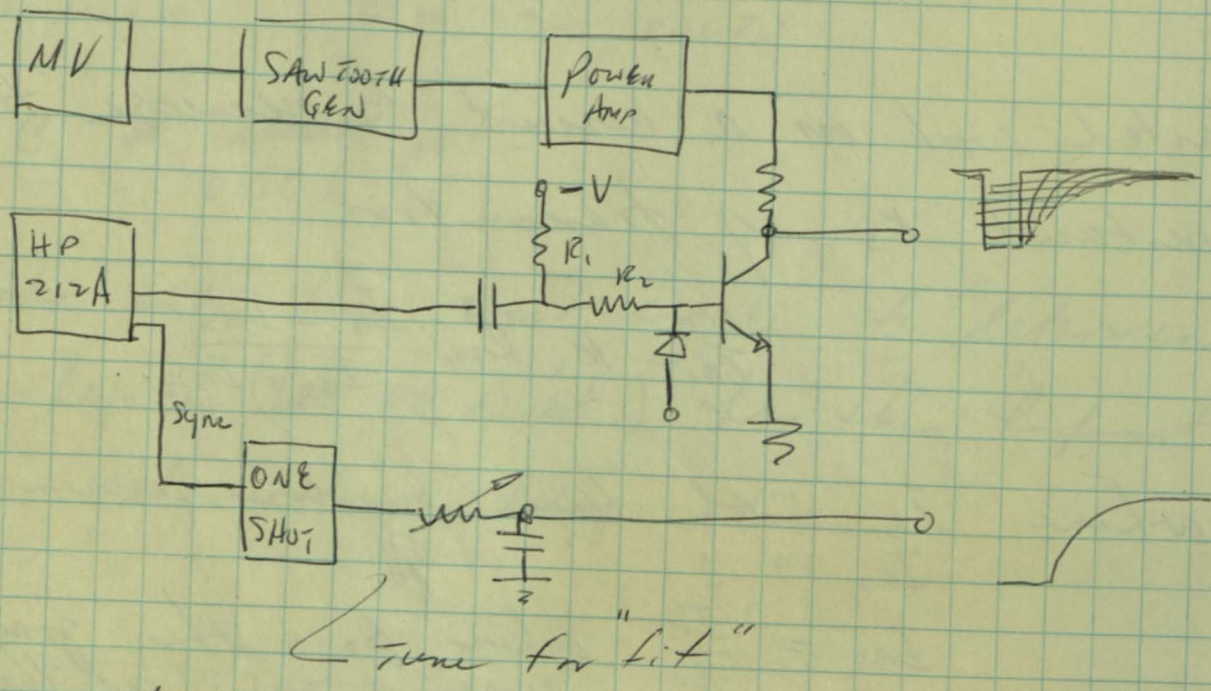 MV
SAWTOOTH
GEN
POWER
AMP
-V
R1
R2
HP
212A
Sync
ONE
SHOT
Tune for "fit"